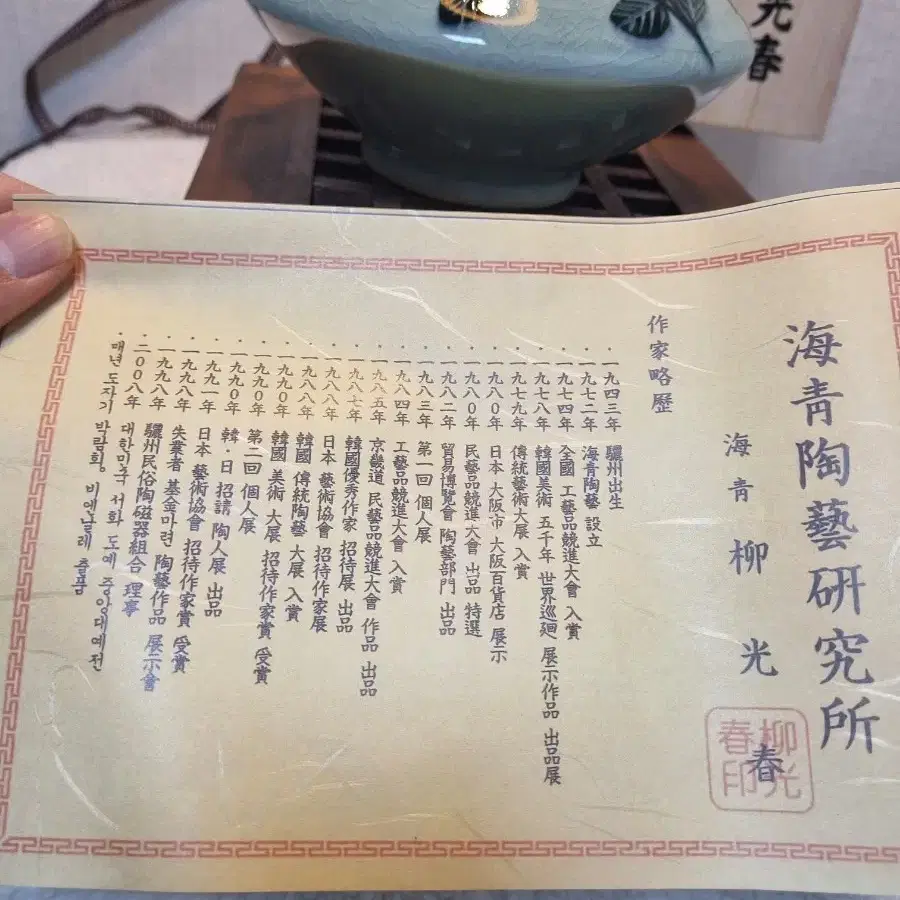 光春
海青陶藝研究所
海青 柳光春
柳光春印
作家略歷
· 一九四三年 驪州出生
· 一九七二年 海青陶藝 設立
· 一九七四年 全國 工藝品競進大會 入賞
· 一九七八年 韓國美術 五千年 世界巡廻 展示作品 出品展
· 一九七九年 傳統藝術大展 入賞
· 一九八0年 日本 大阪市 大阪百貨店 展示
· 一九八0年 民藝品競進大會 出品 特選
· 一九八二年 貿易博覽會 陶藝部門 出品
· 一九八三年 第一回 個人展
· 一九八四年 工藝品競進大會 入賞
· 一九八五年 京畿道 民藝品競進大會 作品 出品
· 一九八七年 韓國優秀作家 招待展 出品
· 一九八八年 日本 藝術協會 招待作家展
· 一九八八年 韓國 傳統陶藝 大展 入賞
· 一九九0年 韓國 美術 大展 招待作家賞 受賞
· 一九九0年 第二回 個人展
· 一九九0年 韓·日 招請 陶人展 出品
· 一九九一年 日本 藝術協會 招待作家賞 受賞
· 一九九八年 失業者 基金마련 陶藝作品 展示會
· 一九九八年 驪州民俗陶磁器組合 理事
· 二00八年 대한민국 서화 도예 중앙대예전
· 매년 도자기 박람회, 비엔날레 출품